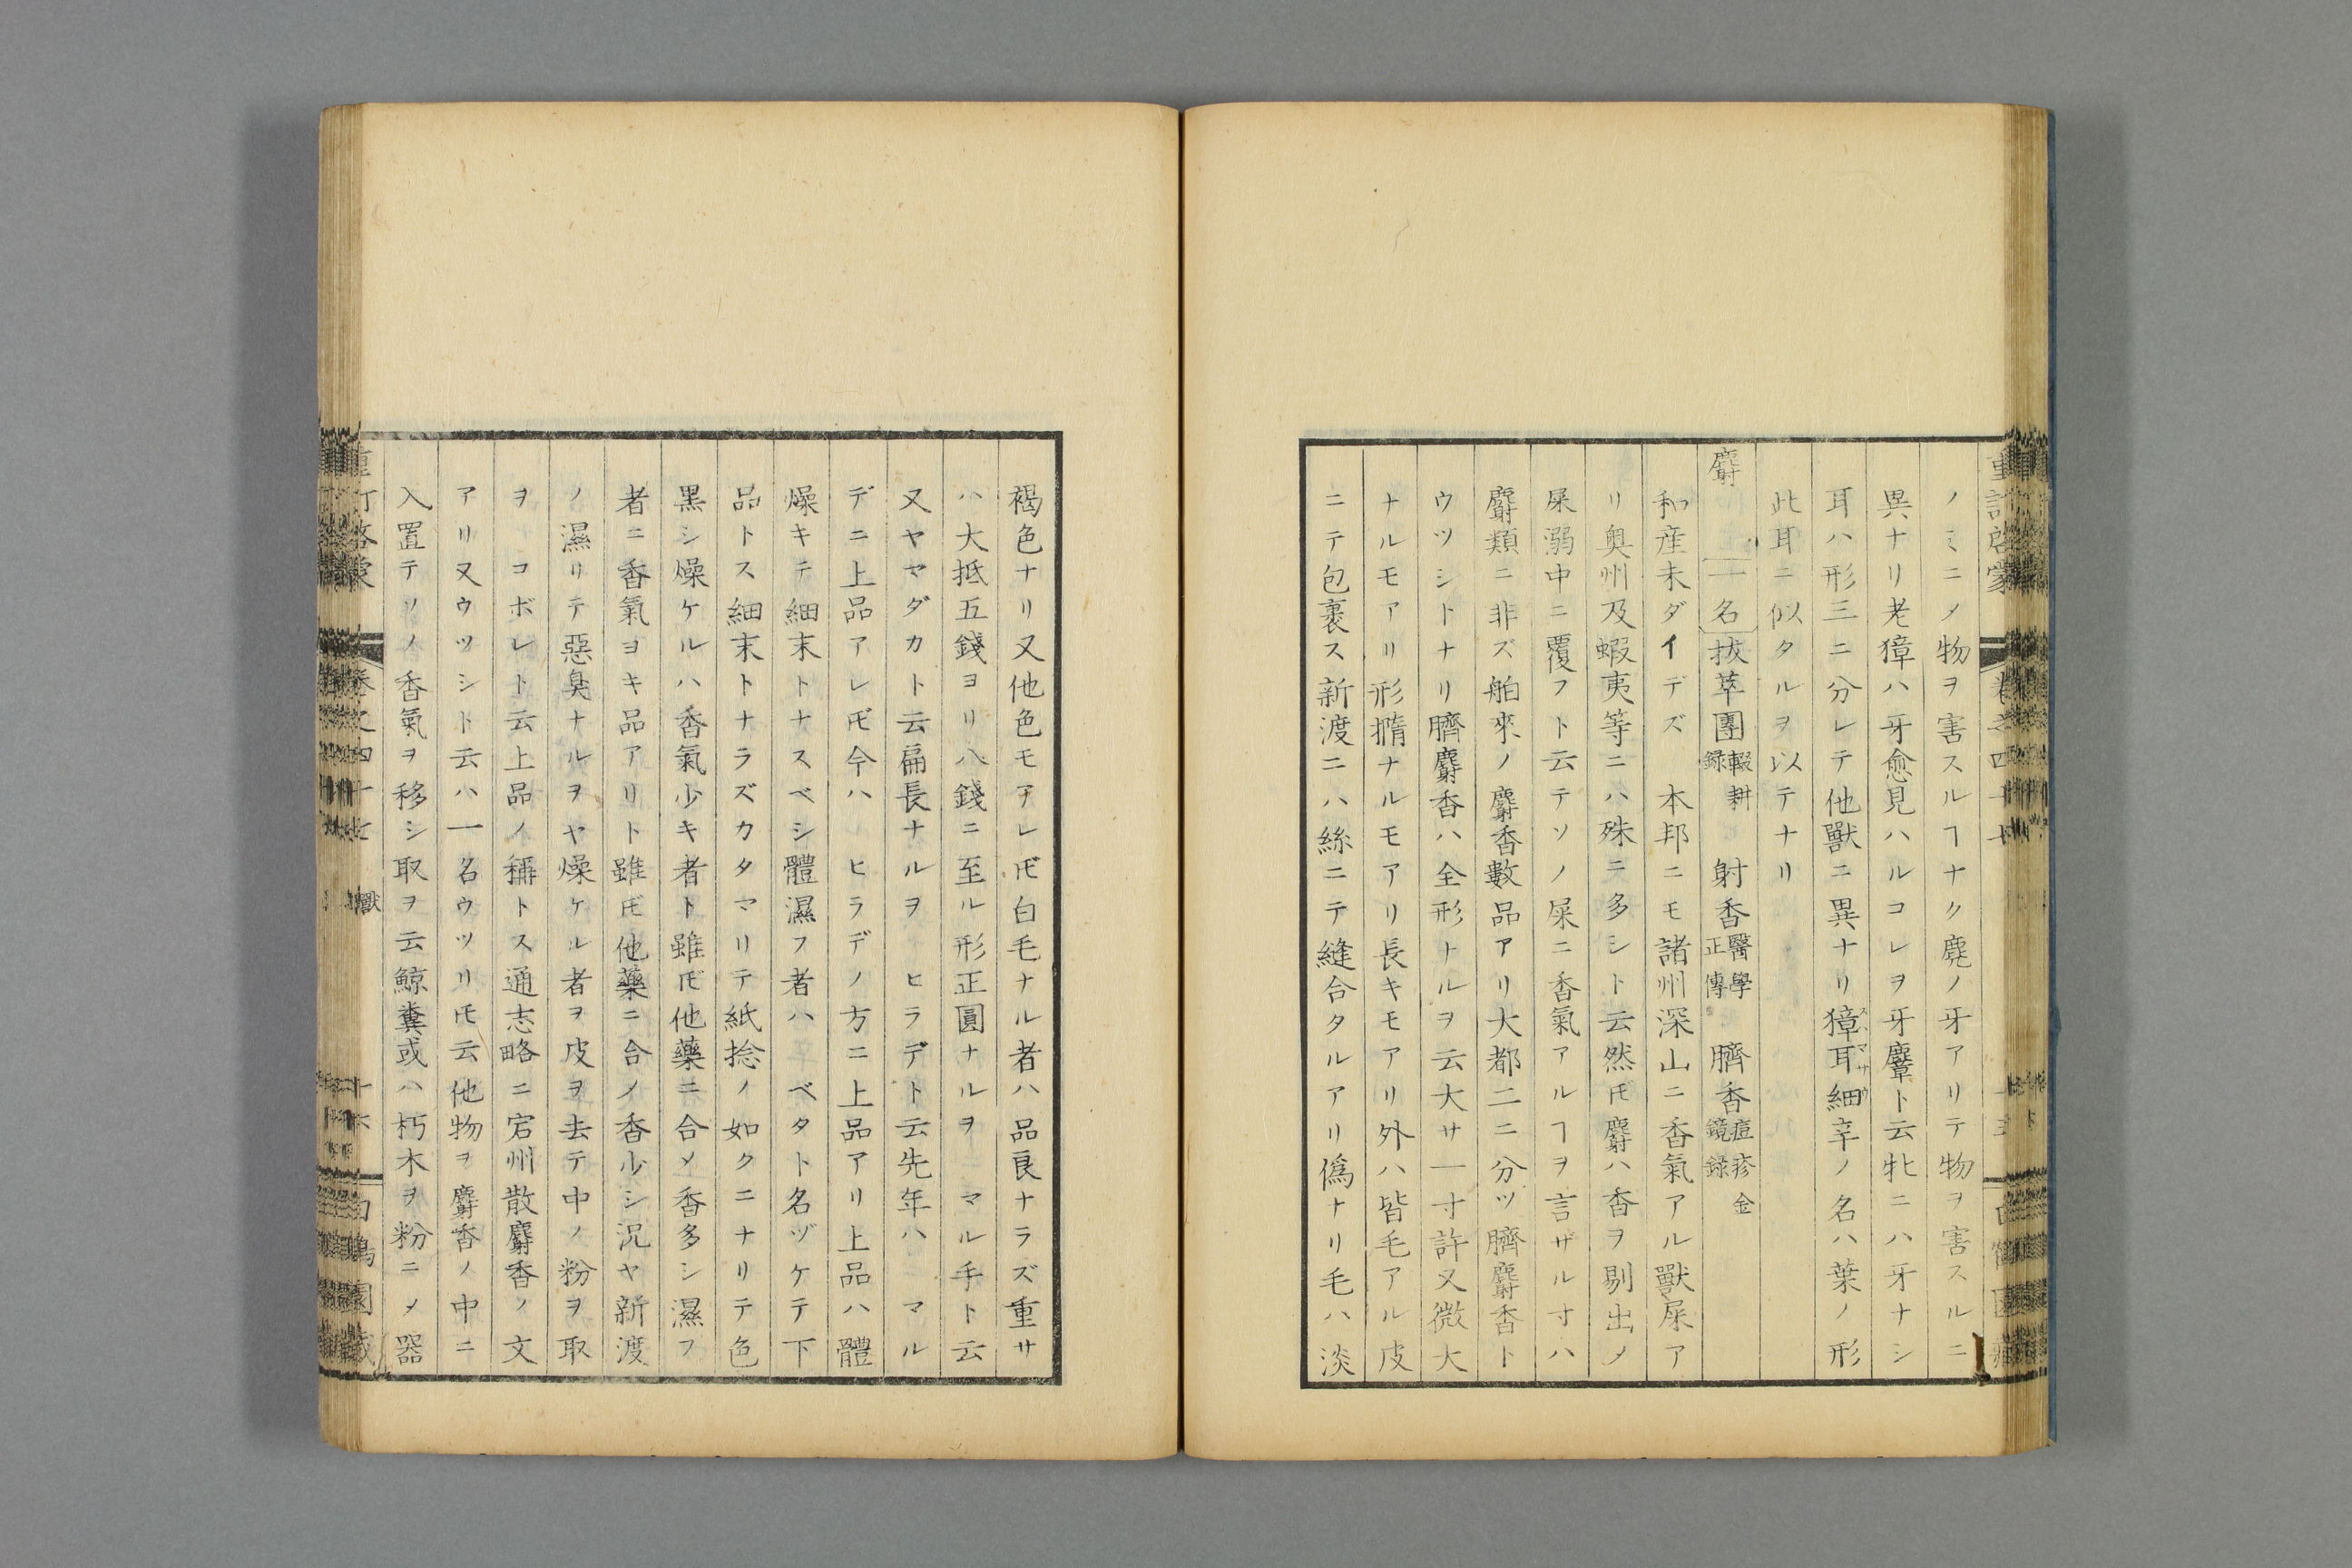 ノミニ〆物ヲ害スルヿナク麂ノ牙アリテ物ヲ害スルニ
異ナリ老獐ハ牙愈見ハルコレヲ牙麞ト云牝ニハ牙ナシ
耳ハ形三ニ分レテ他獸ニ異ナリ獐耳細辛ノ名ハ葉ノ形
此耳ニ似タルヲ以テナリ
麝 一名 拔萃團輟耕録 射香醫學正傳 臍香痘疹金鏡録
和産未ダイデズ 本邦ニモ諸州深山ニ香氣アル獸屎ア
リ奥州及蝦夷等ニハ殊ニ多シト云然𪜈麝ハ香ヲ剔出〆
屎溺中ニ覆フト云テソノ屎ニ香氣アルヿヲ言ザル寸ハ
麝類ニ非ズ舶來ノ麝香數品アリ大都二ニ分ツ臍麝香ト
ウツシトナリ臍麝香ハ全形ナルヲ云大サ一寸許又微大
ナルモアリ形撱ナルモアリ長キモアリ外ハ皆毛アル皮
ニテ包裹ス新渡ニハ絲ニテ縫合タルアリ僞ナリ毛ハ淡
褐色ナリ又他色モアレ𪜈白毛ナル者ハ品良ナラズ重サ
ハ大抵五錢ヨリ八錢ニ至ル形正圓ナルヲ マル手ト云
又ヤマダカト云扁長ナルヲ ヒラデト云先年ハ マル
デニ上品アレ𪜈今ハ ヒラデノ方ニ上品アリ上品ハ體
燥キテ細末トナスベシ體濕フ者ハ ベタト名ヅケテ下
品トス細末トナラズカタマリテ紙捻ノ如クニナリテ色
黒シ燥ケルハ香氣少キ者ト雖𪜈他藥ニ合〆香多シ濕フ
者ニ香氣ヨキ品アリト雖𪜈他藥ニ合〆香少シ況ヤ新渡
ノ濕リテ惡臭ナルヲヤ燥ケル者ヲ皮ヲ去テ中ノ粉ヲ取
ヲ コボレト云上品ノ稱トス通志略ニ宕州散麝香ノ文
アリ又ウツシト云ハ一名ウツリ𪜈云他物ヲ麝香ノ中ニ
入置テソノ香氣ヲ移シ取ヲ云鯨糞或ハ朽木ヲ粉ニ〆器